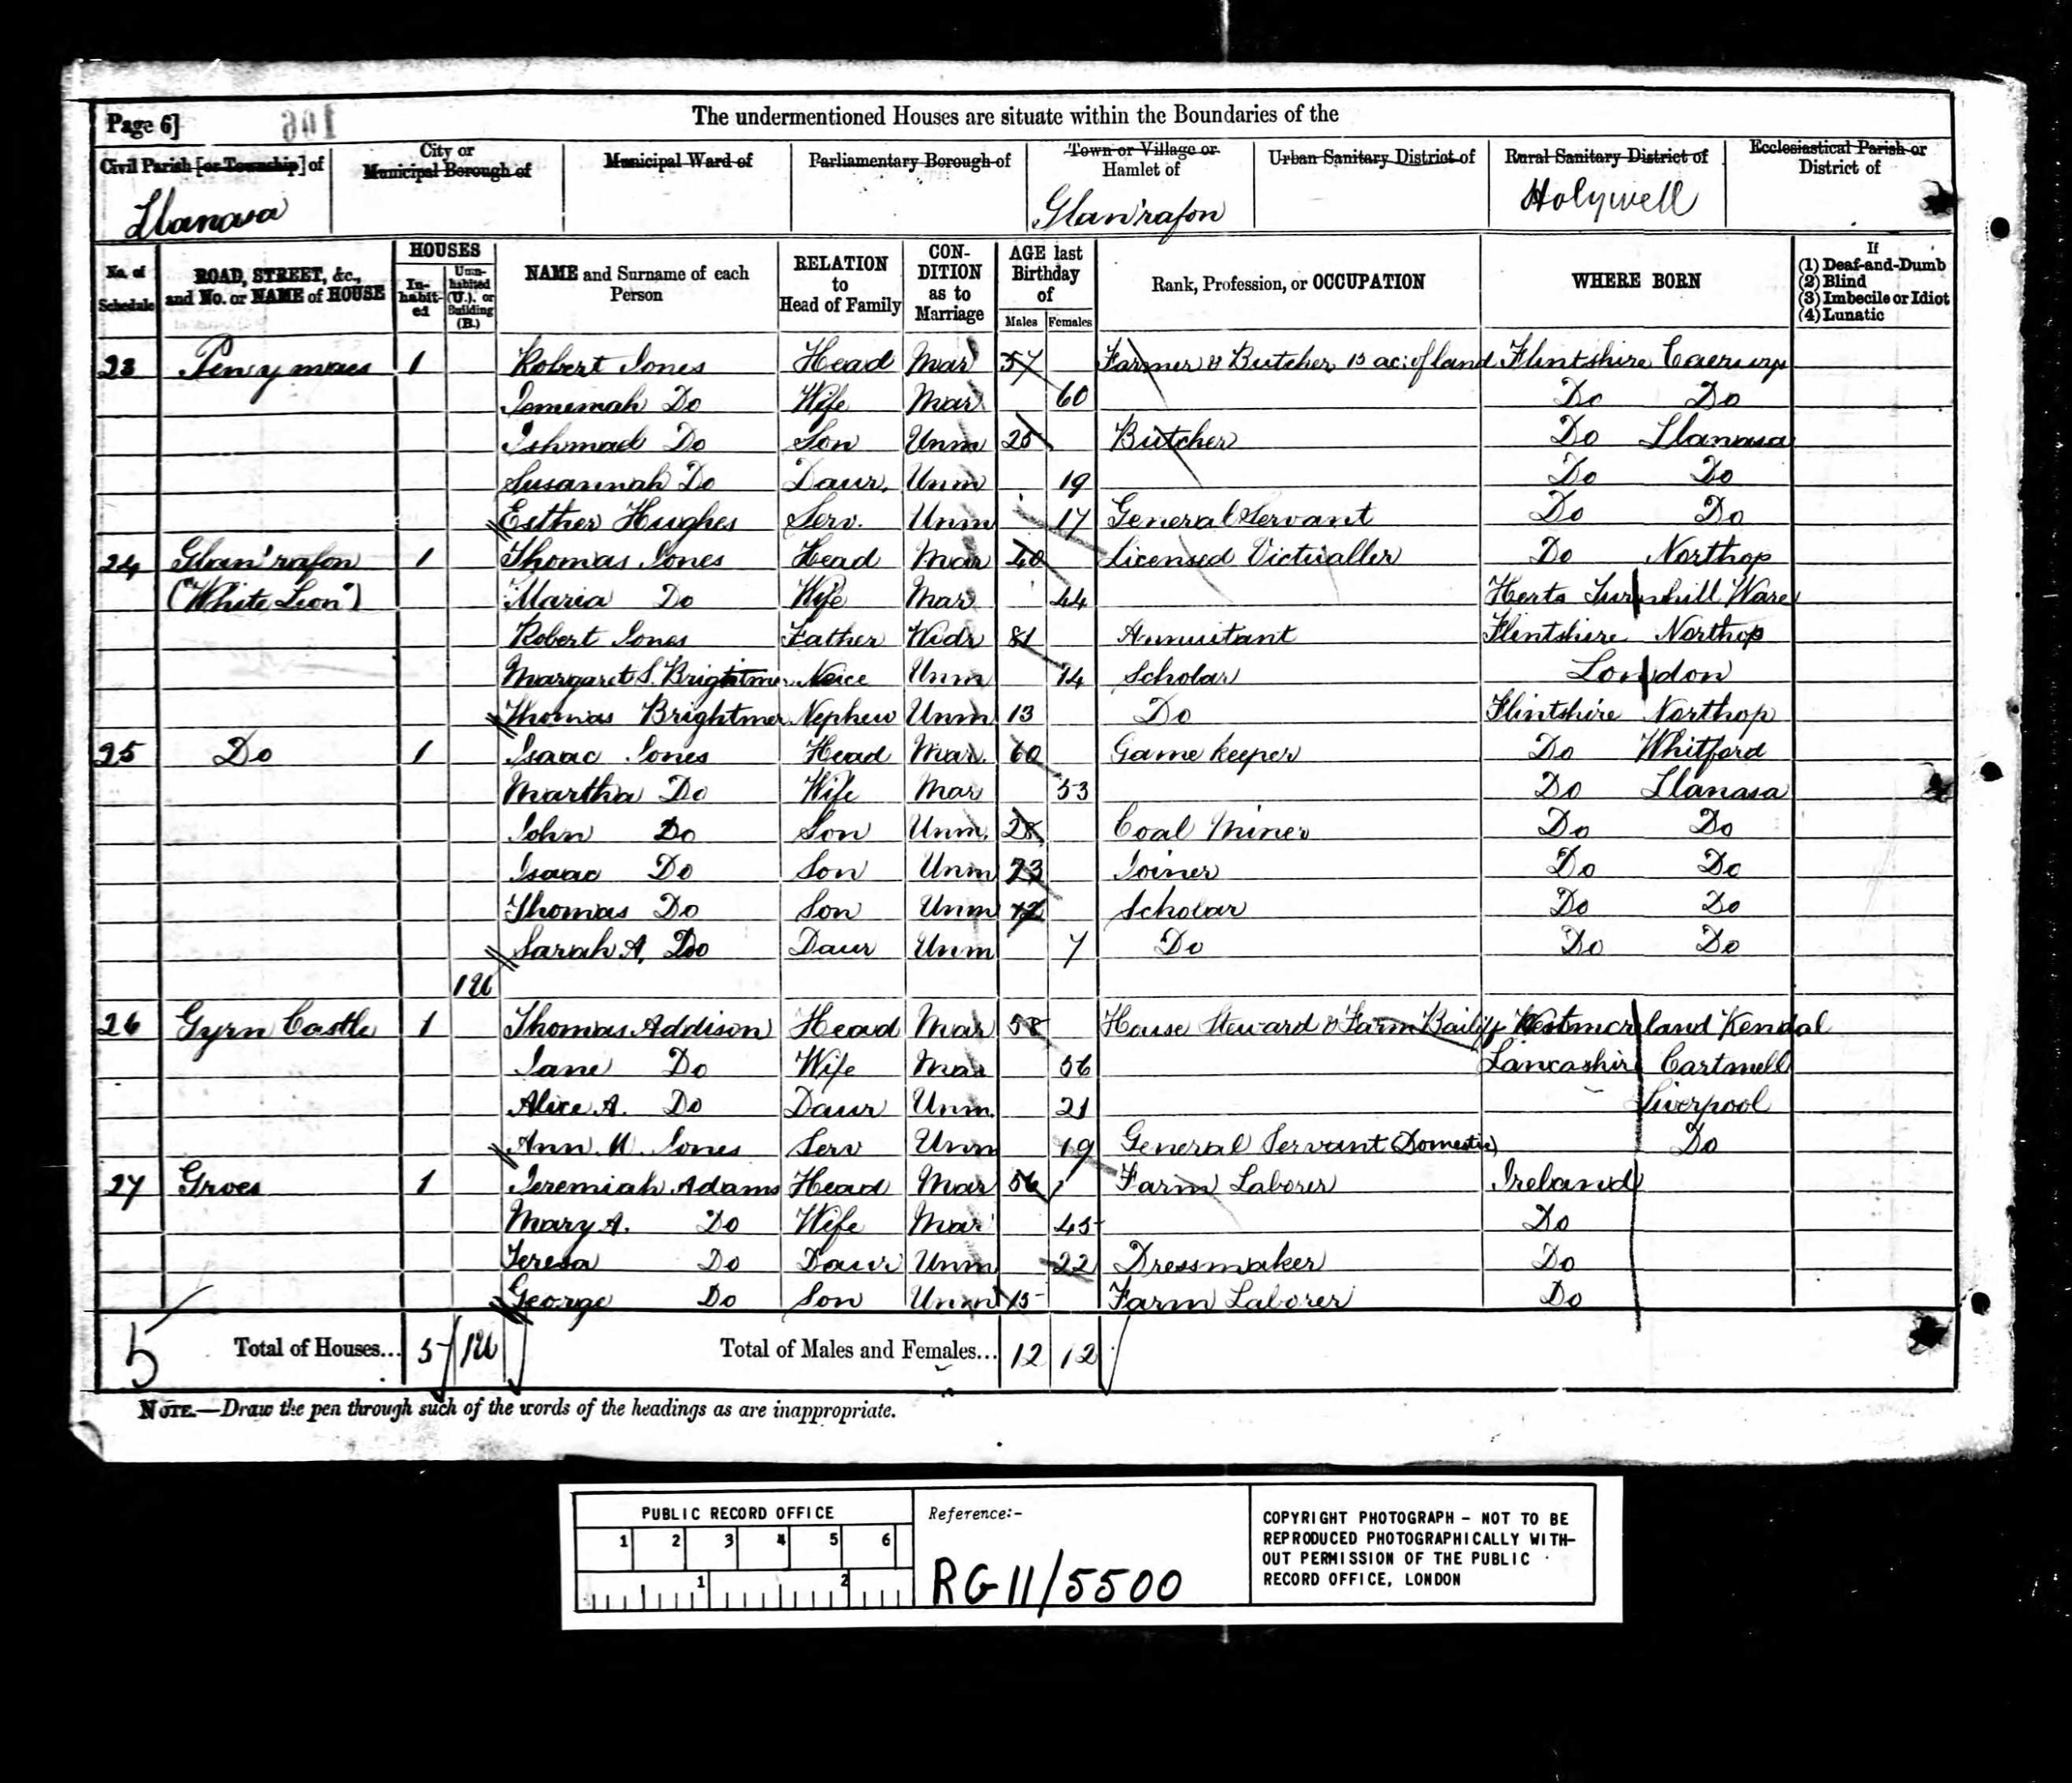 Page 6] 106 The undermentioned Houses are situate within the Boundaries of the
Civil Parish [or Township] of City or Municipal Borough of Municipal Ward of Parliamentary Borough of Town or Village or Hamlet of Urban Sanitary District of Rural Sanitary District of Ecclesiastical Parish or District of
Llanasa Glan'rafon Holywell
No. of Schedule ROAD, STREET, &c., and No. or NAME of HOUSE HOUSES In-habit-ed Unin-habited (U.), or Building (B.) NAME and Surname of each Person RELATION to Head of Family CON-DITION as to Marriage AGE last Birthday of Males Females Rank, Profession, or OCCUPATION WHERE BORN If (1) Deaf-and-Dumb (2) Blind (3) Imbecile or Idiot (4) Lunatic
23 Penymaes 1 Robert Jones Head Mar 57 Farmer & Butcher 15 ac: of land Flintshire Caerwys
Jememah Do Wife Mar 60 Do Do
Ishmael Do Son Unm 25 Butcher Do Llanasa
Susannah Do Daur. Unm 19 Do Do
Esther Hughes Serv. Unm 17 General Servant Do Do
24 Glan'rafon 1 Thomas Jones Head Mar 40 Licensed Victualler Do Northop
("White Lion") Maria Do Wife Mar 44 Herts Ware
Robert Jones Father Widr 81 Annuitant Flintshire Northop
Margaret S. Brightmer Neice Unm 14 Scholar London
Thomas Brightmer Nephew Unm 13 Do Flintshire Northop
25 Do 1 Isaac Jones Head Mar. 60 Game keeper Do Whitford
Martha Do Wife Mar 53 Do Llanasa
John Do Son Unm. 28 Coal Miner Do Do
Isaac Do Son Unm 23 Joiner Do Do
Thomas Do Son Unm 12 Scholar Do Do
Sarah A. Do Daur Unm 7 Do Do Do
1U
26 Gyrn Castle 1 Thomas Addison Head Mar 58 House Steward & Farm Bailiff Westmorland Kendal
Jane Do Wife Mar 56 Lancashire Cartmell
Alice A. Do Daur Unm. 21 Liverpool
Ann M. Jones Serv Unm 19 General Servant (Domestic) Do
27 Groes 1 Jeremiah Adams Head Mar 56 Farm Laborer Ireland
Mary A. Do Wife Mar 45 Do
Teresa Do Daur Unm 22 Dressmaker Do
George Do Son Unm 15 Farm Laborer Do
5 Total of Houses... 5 1U Total of Males and Females... 12 12
NOTE.—Draw the pen through such of the words of the headings as are inappropriate.
PUBLIC RECORD OFFICE Reference:- COPYRIGHT PHOTOGRAPH - NOT TO BE
1 2 3 4 5 6 REPRODUCED PHOTOGRAPHICALLY WITH-
OUT PERMISSION OF THE PUBLIC
1 2 RG 11/5500 RECORD OFFICE, LONDON